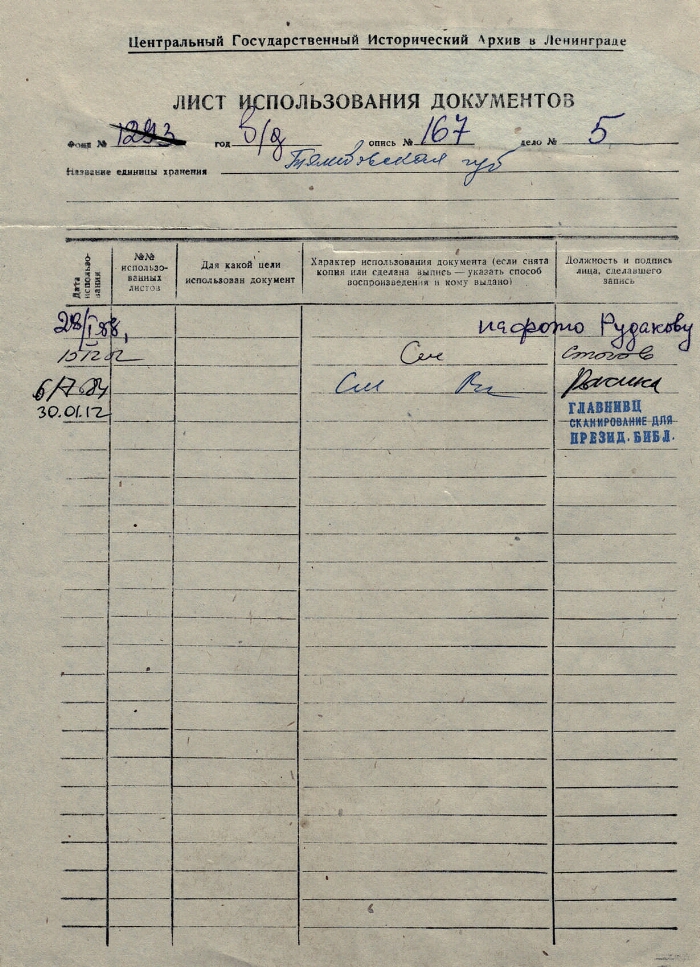 Центральный Государственный Исторический Архив в Ленинграде
ЛИСТ ИСПОЛЬЗОВАНИЯ ДОКУМЕНТОВ
Фонд № 1293 год б/д опись № 167 дело № 5
Название единицы хранения Тамбовская губ
Дата использования
№№ использо-
ванных
листов
Для какой цели
использован документ
Характер использования документа (если снята
копия или сделана выпись — указать способ
воспроизведения и кому выдано)
Должность и подпись
лица, сделавшего
запись
28/I 88, на фото Рудакову
См
См
30.01.12
ГЛАВНИВЦ
СКАНИРОВАНИЕ ДЛЯ
ПРЕЗИД. БИБЛ.